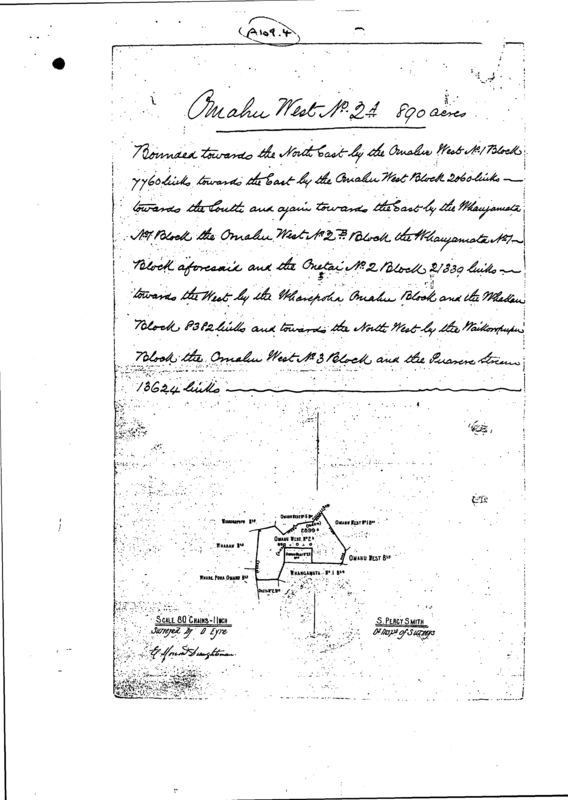 A109.4
Omahu West No. 2A 890 acres
Bounded towards the North East by the Omahu West No. 1 Block
7760 links towards the East by the Omahu West Block 2060 links
towards the South and again towards the East by the Whangamata
No. 1 Block the Omahu West No. 2B Block the Whangamata No. 1
Block aforesaid and the Onetai No. 2 Block 21339 links
towards the West by the Wharepoha Omahu Block and the Whakau
Block 8382 links and towards the North West by the
Block the Omahu West No. 3 Block and the Puarere Stream
13624 links
Omahu West No 3 Bk
Omahu West No 1 Bk
Omahu West No 2A
Omahu West Bk
Whangamata No 1 Bk
Scale 80 Chains = 1 Inch
Surveyed by D Eyre
Draughtsman
S. Percy Smith
of Surveys